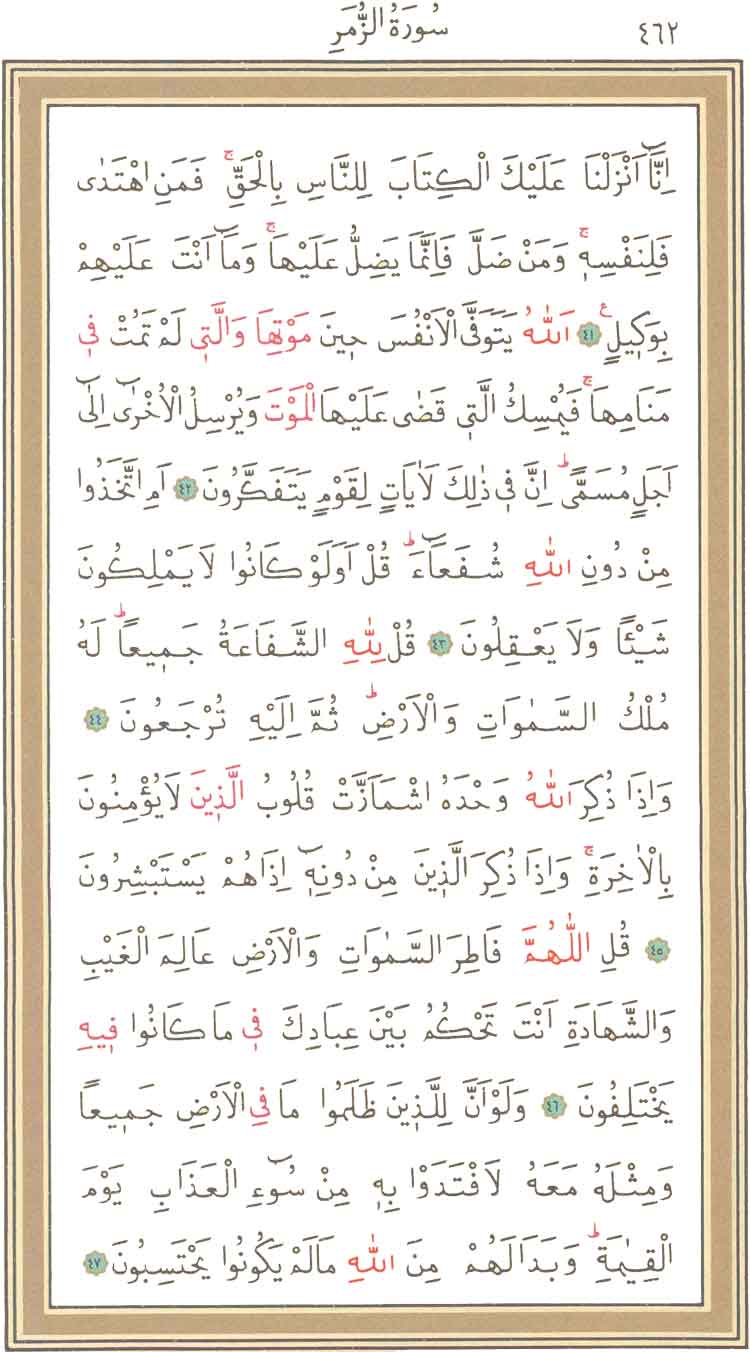 سُورَةُ الزُّمَرِ ٤٦٢
اِنَّٓا اَنْزَلْنَا عَلَيْكَ الْكِتَابَ لِلنَّاسِ بِالْحَقِّۚ فَمَنِ اهْتَدٰى
فَلِنَفْسِه۪ۚ وَمَنْ ضَلَّ فَاِنَّمَا يَضِلُّ عَلَيْهَاۚ وَمَٓا اَنْتَ عَلَيْهِمْ
بِوَك۪يلٍ۟ ٤١ اَللّٰهُ يَتَوَفَّى الْاَنْفُسَ ح۪ينَ مَوْتِهَا وَالَّت۪ي لَمْ تَمُتْ ف۪ي
مَنَامِهَاۚ فَيُمْسِكُ الَّت۪ي قَضٰى عَلَيْهَا الْمَوْتَ وَيُرْسِلُ الْاُخْرٰٓى اِلٰٓى
اَجَلٍ مُسَمًّىۜ اِنَّ ف۪ي ذٰلِكَ لَاٰيَاتٍ لِقَوْمٍ يَتَفَكَّرُونَ ٤٢ اَمِ اتَّخَذُوا
مِنْ دُونِ اللّٰهِ شُفَعَٓاءَۜ قُلْ اَوَلَوْ كَانُوا لَا يَمْلِكُونَ
شَيْـًٔا وَلَا يَعْقِلُونَ ٤٣ قُلْ لِلّٰهِ الشَّفَاعَةُ جَم۪يعاًۜ لَهُ
مُلْكُ السَّمٰوَاتِ وَالْاَرْضِۜ ثُمَّ اِلَيْهِ تُرْجَعُونَ ٤٤
وَاِذَا ذُكِرَ اللّٰهُ وَحْدَهُ اشْمَاَزَّتْ قُلُوبُ الَّذ۪ينَ لَا يُؤْمِنُونَ
بِالْاٰخِرَةِۚ وَاِذَا ذُكِرَ الَّذ۪ينَ مِنْ دُونِه۪ٓ اِذَا هُمْ يَسْتَبْشِرُونَ
٤٥ قُلِ اللّٰهُمَّ فَاطِرَ السَّمٰوَاتِ وَالْاَرْضِ عَالِمَ الْغَيْبِ
وَالشَّهَادَةِ اَنْتَ تَحْكُمُ بَيْنَ عِبَادِكَ ف۪ي مَا كَانُوا ف۪يهِ
يَخْتَلِفُونَ ٤٦ وَلَوْ اَنَّ لِلَّذ۪ينَ ظَلَمُوا مَا فِي الْاَرْضِ جَم۪يعاً
وَمِثْلَهُ مَعَهُ لَافْتَدَوْا بِه۪ مِنْ سُٓوءِ الْعَذَابِ يَوْمَ
الْقِيٰمَةِۜ وَبَدَا لَهُمْ مِنَ اللّٰهِ مَا لَمْ يَكُونُوا يَحْتَسِبُونَ ٤٧